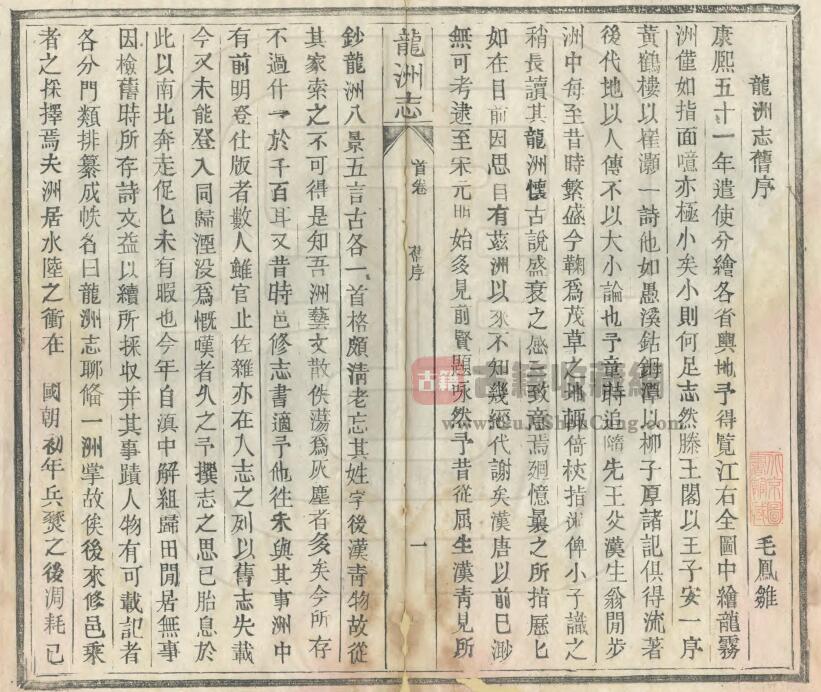 龍洲志舊序
毛鳳雛
康熙五十一年遣使分繪各省輿地予得覧江右全圖中繪龍霧
洲僅如指面噫亦極小矣小則何足志然滕王閣以王子安一序
黃鶴樓以崔灝一詩他如愚溪鈷鉧潭以柳子厚諸記俱得流著
後代地以人傳不以大小論也予童時追隨先王父漢生翁閒步
洲中每至昔時繁盛今鞠爲茂草之地輒倚杖指洲俾小子識之
稍長讀其龍洲懷古說盛衰之感致意焉廻憶曩之所指歷匕
如在目前因思目有茲洲以來不知幾經代謝矣漢唐以前巳渺
無可考逮至宋元明始多見前賢題咏然予昔從屈生漢青見所
龍洲志
首卷
舊序
一
鈔龍洲八景五言古各一首格頗清老忘其姓字後漢青物故從
其家索之不可得是知吾洲藝文散佚蕩爲灰塵者多矣今所存
不過什一於千百耳又昔時邑修志書適予他徃未與其事洲中
有前明登仕版者數人雖官止佐雜亦在人志之列以舊志失載
今又未能登入同歸湮没爲慨嘆者久之予撰志之思已胎息於
此以南北奔走促匕未有暇也今年自滇中解組歸田閒居無事
因檢舊時所存詩文益以續所採収并其事蹟人物有可載記者
各分門類排纂成帙名曰龍洲志聊偹一洲掌故俟後來修邑乘
者之採擇焉夫洲居水陸之衝在 國朝初年兵燹之後凋耗已
古籍
古籍收藏網
www.GuJiShuCang.com